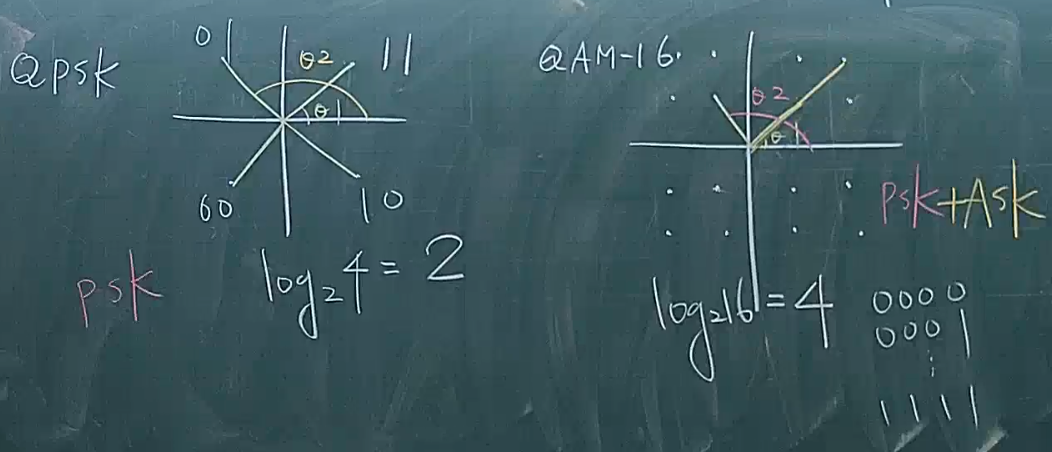 Qpsk
01
11
θ2
θ1
00
10
psk
log₂4 = 2
QAM-16
θ2
θ1
psk+Ask
log₂16 = 4
0000
0001
⋮
1111